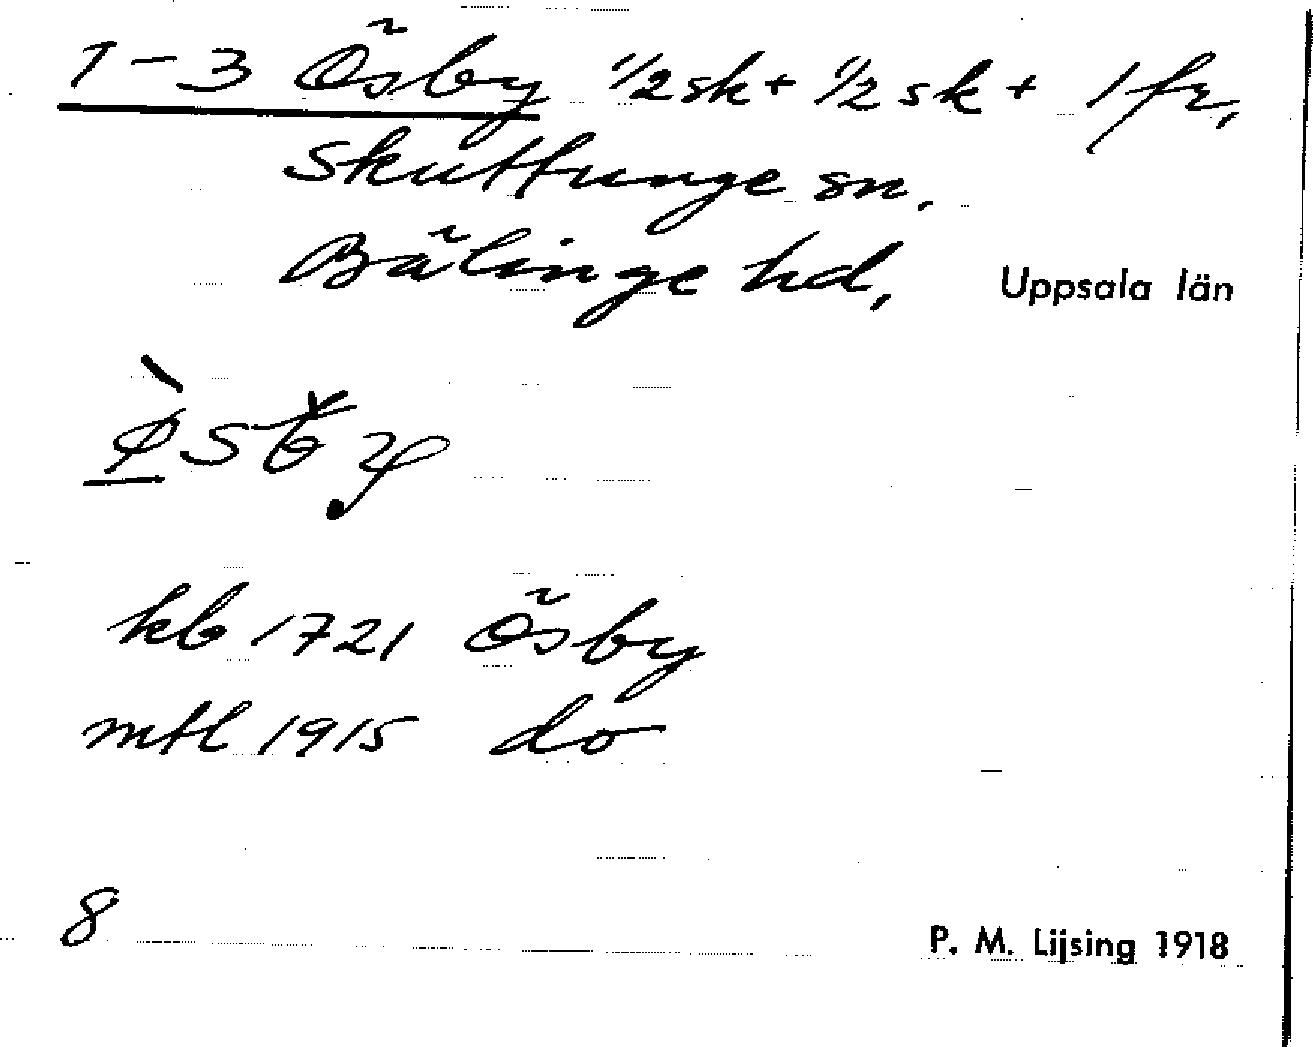 1-3 Ösby 1/2 sk + 1/2 sk + 1 fr,
Skuttunge sn.
Bälinge hd,
Uppsala län
kb 1721 Ösby
mtl 1915 do
8
P. M. Lijsing 1918